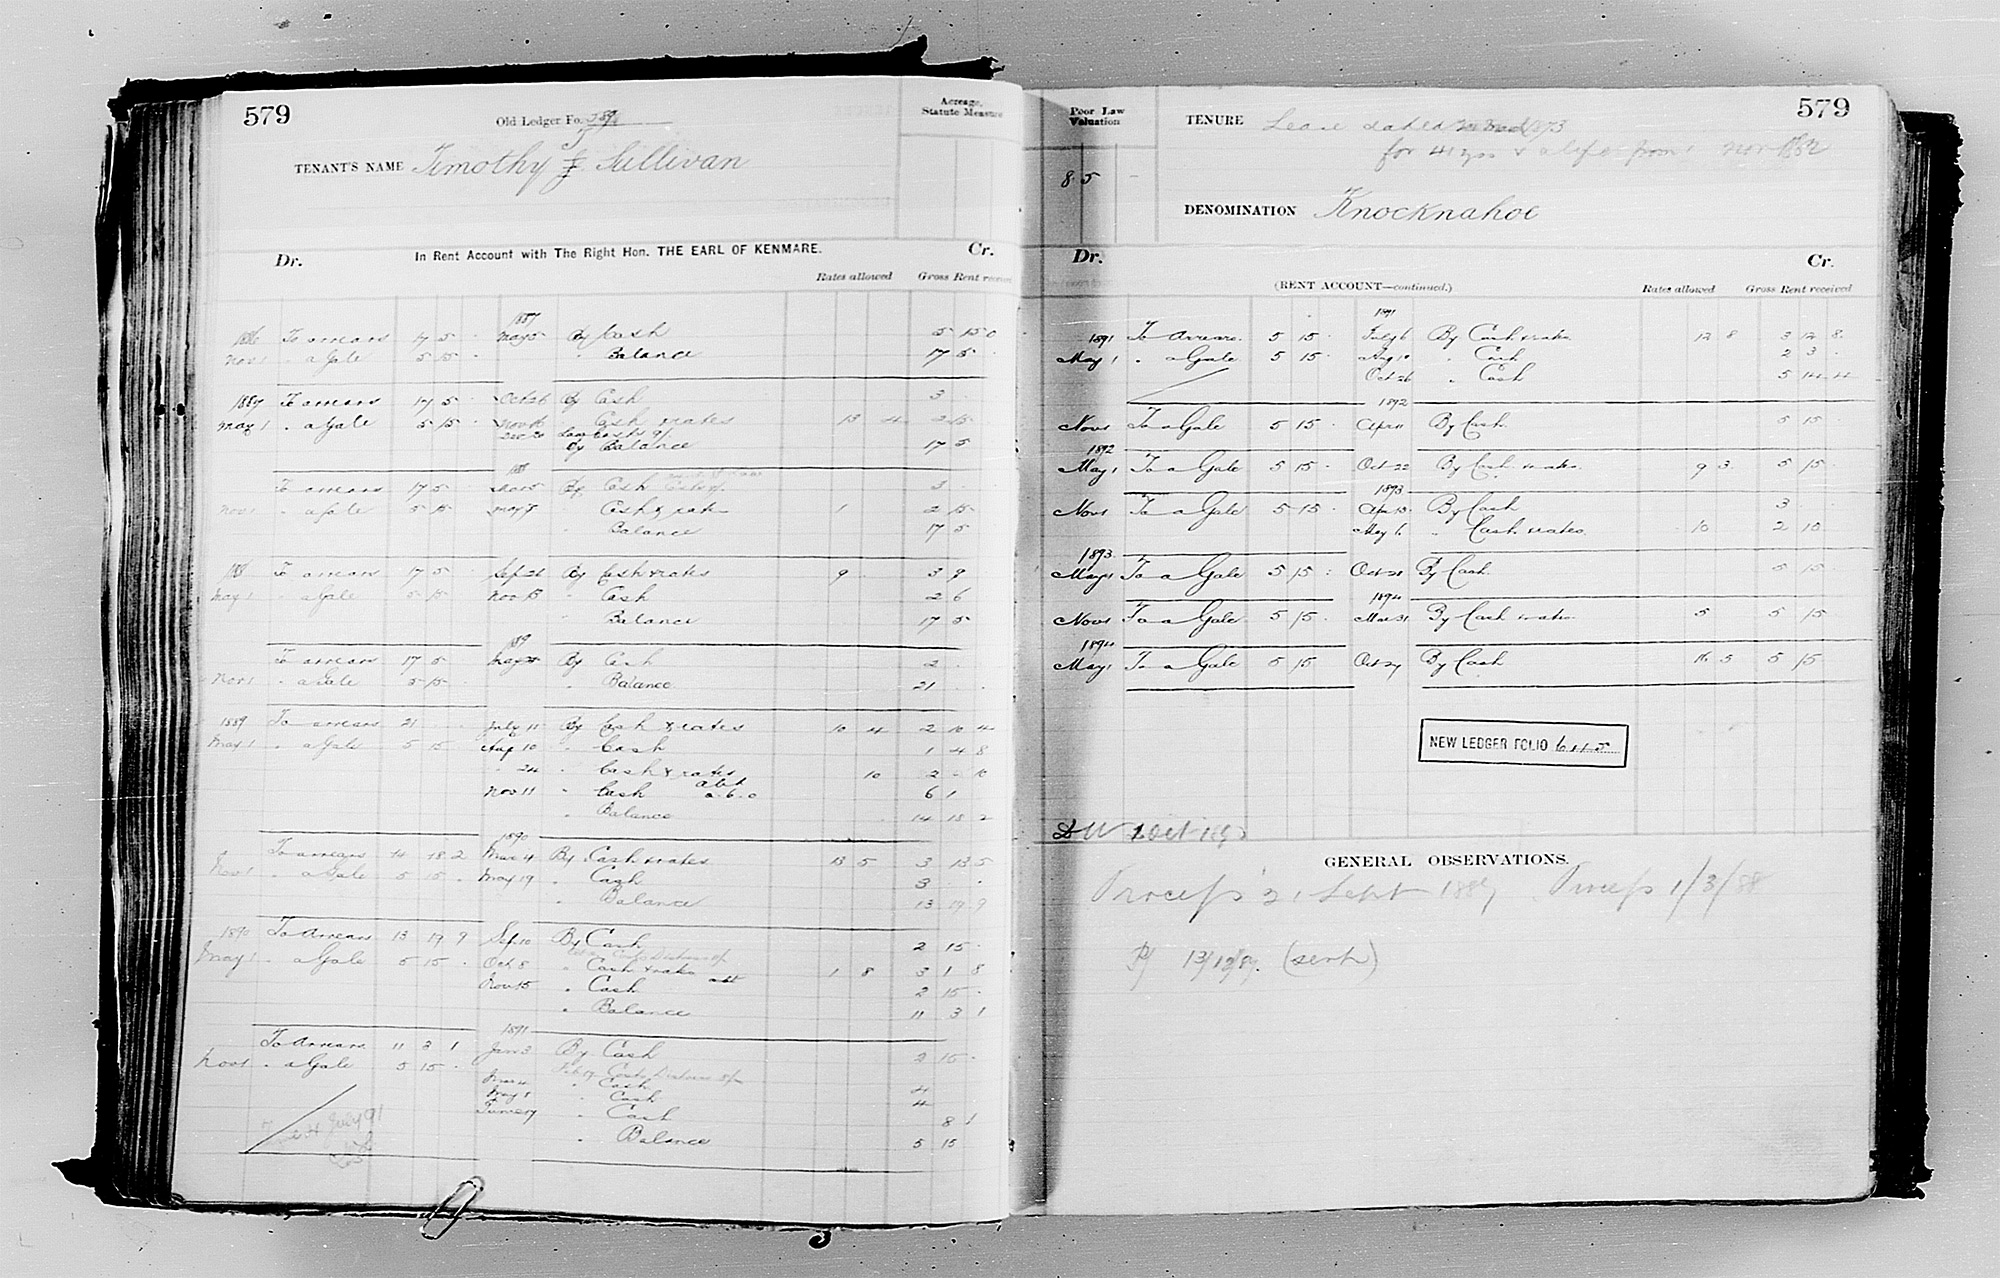 579
Old Ledger Fo.
Acreage,
Statute Measure
TENANT'S NAME Timothy J. Sullivan
Dr. In Rent Account with The Right Hon. THE EARL OF KENMARE. Cr.
Rates allowed Gross Rent received
1887
1886 To arrears 17 5 · May 5 By Cash 5 15 0
Nov 1 " a Gale 5 15 · " Balance 17 5 ·
1887 To arrears 17 5 · Oct 26 By Cash 3
May 1 " a Gale 5 15 · Nov 16 Cash & rates 13 4 2 15 ·
Dec 20
By Balance 17 5
188
To arrears 17 5 By Cash 3 ·
Nov 1 " a Gale 5 15 May Cash & rates 1 2 15
Balance 17 5
188 To arrears 17 5 · Sep 26 By Cash & rates 9 3 9
May 1 " a Gale 5 15 Nov 15 " Cash 2 6
" Balance 17 5
1889
To arrears 17 5 May By Cash 2 ·
Nov 1 " a Gale 5 15 " Balance 21 · ·
1889 To arrears 21 July 11 By Cash & rates 10 4 2 10 4
May 1 " a Gale 5 15 · Aug 10 " Cash 1 4 8
" 24 " Cash & rates 10 2 - 10
Nov 11 " Cash abt 6 1
" Balance 14 18 2
1890
To arrears 14 18 2 Mar 4 By Cash & rates 13 5 3 13 5
Nov 1 " a Gale 5 15 · May 19 " Cash 3 · ·
" Balance 13 19 9
1890 To Arrears 13 19 9 Sep 10 By Cash 2 15 ·
May 1 " a Gale 5 15 · Oct 8 " Cash & rates abt 1 8 3 1 8
Nov 15 " Cash 2 15 ·
" Balance 11 3 1
1891
To Arrears 11 3 1 Jan 3 By Cash 2 15 ·
Nov 1 " a Gale 5 15 ·
" Cash 4
May " Cash 4
June " Cash 8 1
" Balance 5 15
July 91
Poor Law
Valuation
8 5 -
TENURE Lease dated 1873
for 41 yrs & a life from Nov
579
DENOMINATION Knocknahoe
Dr. Cr.
(RENT ACCOUNT—continued.) Rates allowed Gross Rent received
1891
1891 To Arrears 5 15 · July 6 By Cash & rates 12 8 3 12 8
May 1 " a Gale 5 15 · Aug 10 " Cash 2 3 ·
Oct 26 " Cash 5 14 4
1892
Nov 1 To a Gale 5 15 · Apr 11 By Cash 5 15
1892
May 1 To a Gale 5 15 · Oct 22 By Cash & rates 9 3 5 15 ·
1893
Nov 1 To a Gale 5 15 · Apr 13 By Cash 3
May 6 " Cash & rates 10 2 10
1893
May 1 To a Gale 5 15 Oct By Cash 5 15 ·
1894
Nov 1 To a Gale 5 15 Mar 31 By Cash & rates 5 5 15
1894
May 1 To a Gale 5 15 Oct 27 By Cash 16 5 5 15
NEW LEDGER FOLIO
GENERAL OBSERVATIONS.
Process Sept 1887 Process 1/3/88
13/12/87 (sent)